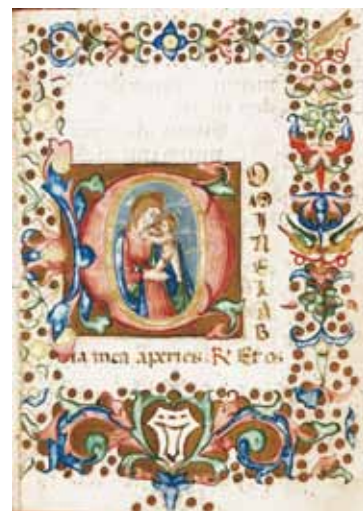 DOMINE LAB
ia mea aperies. R Et os